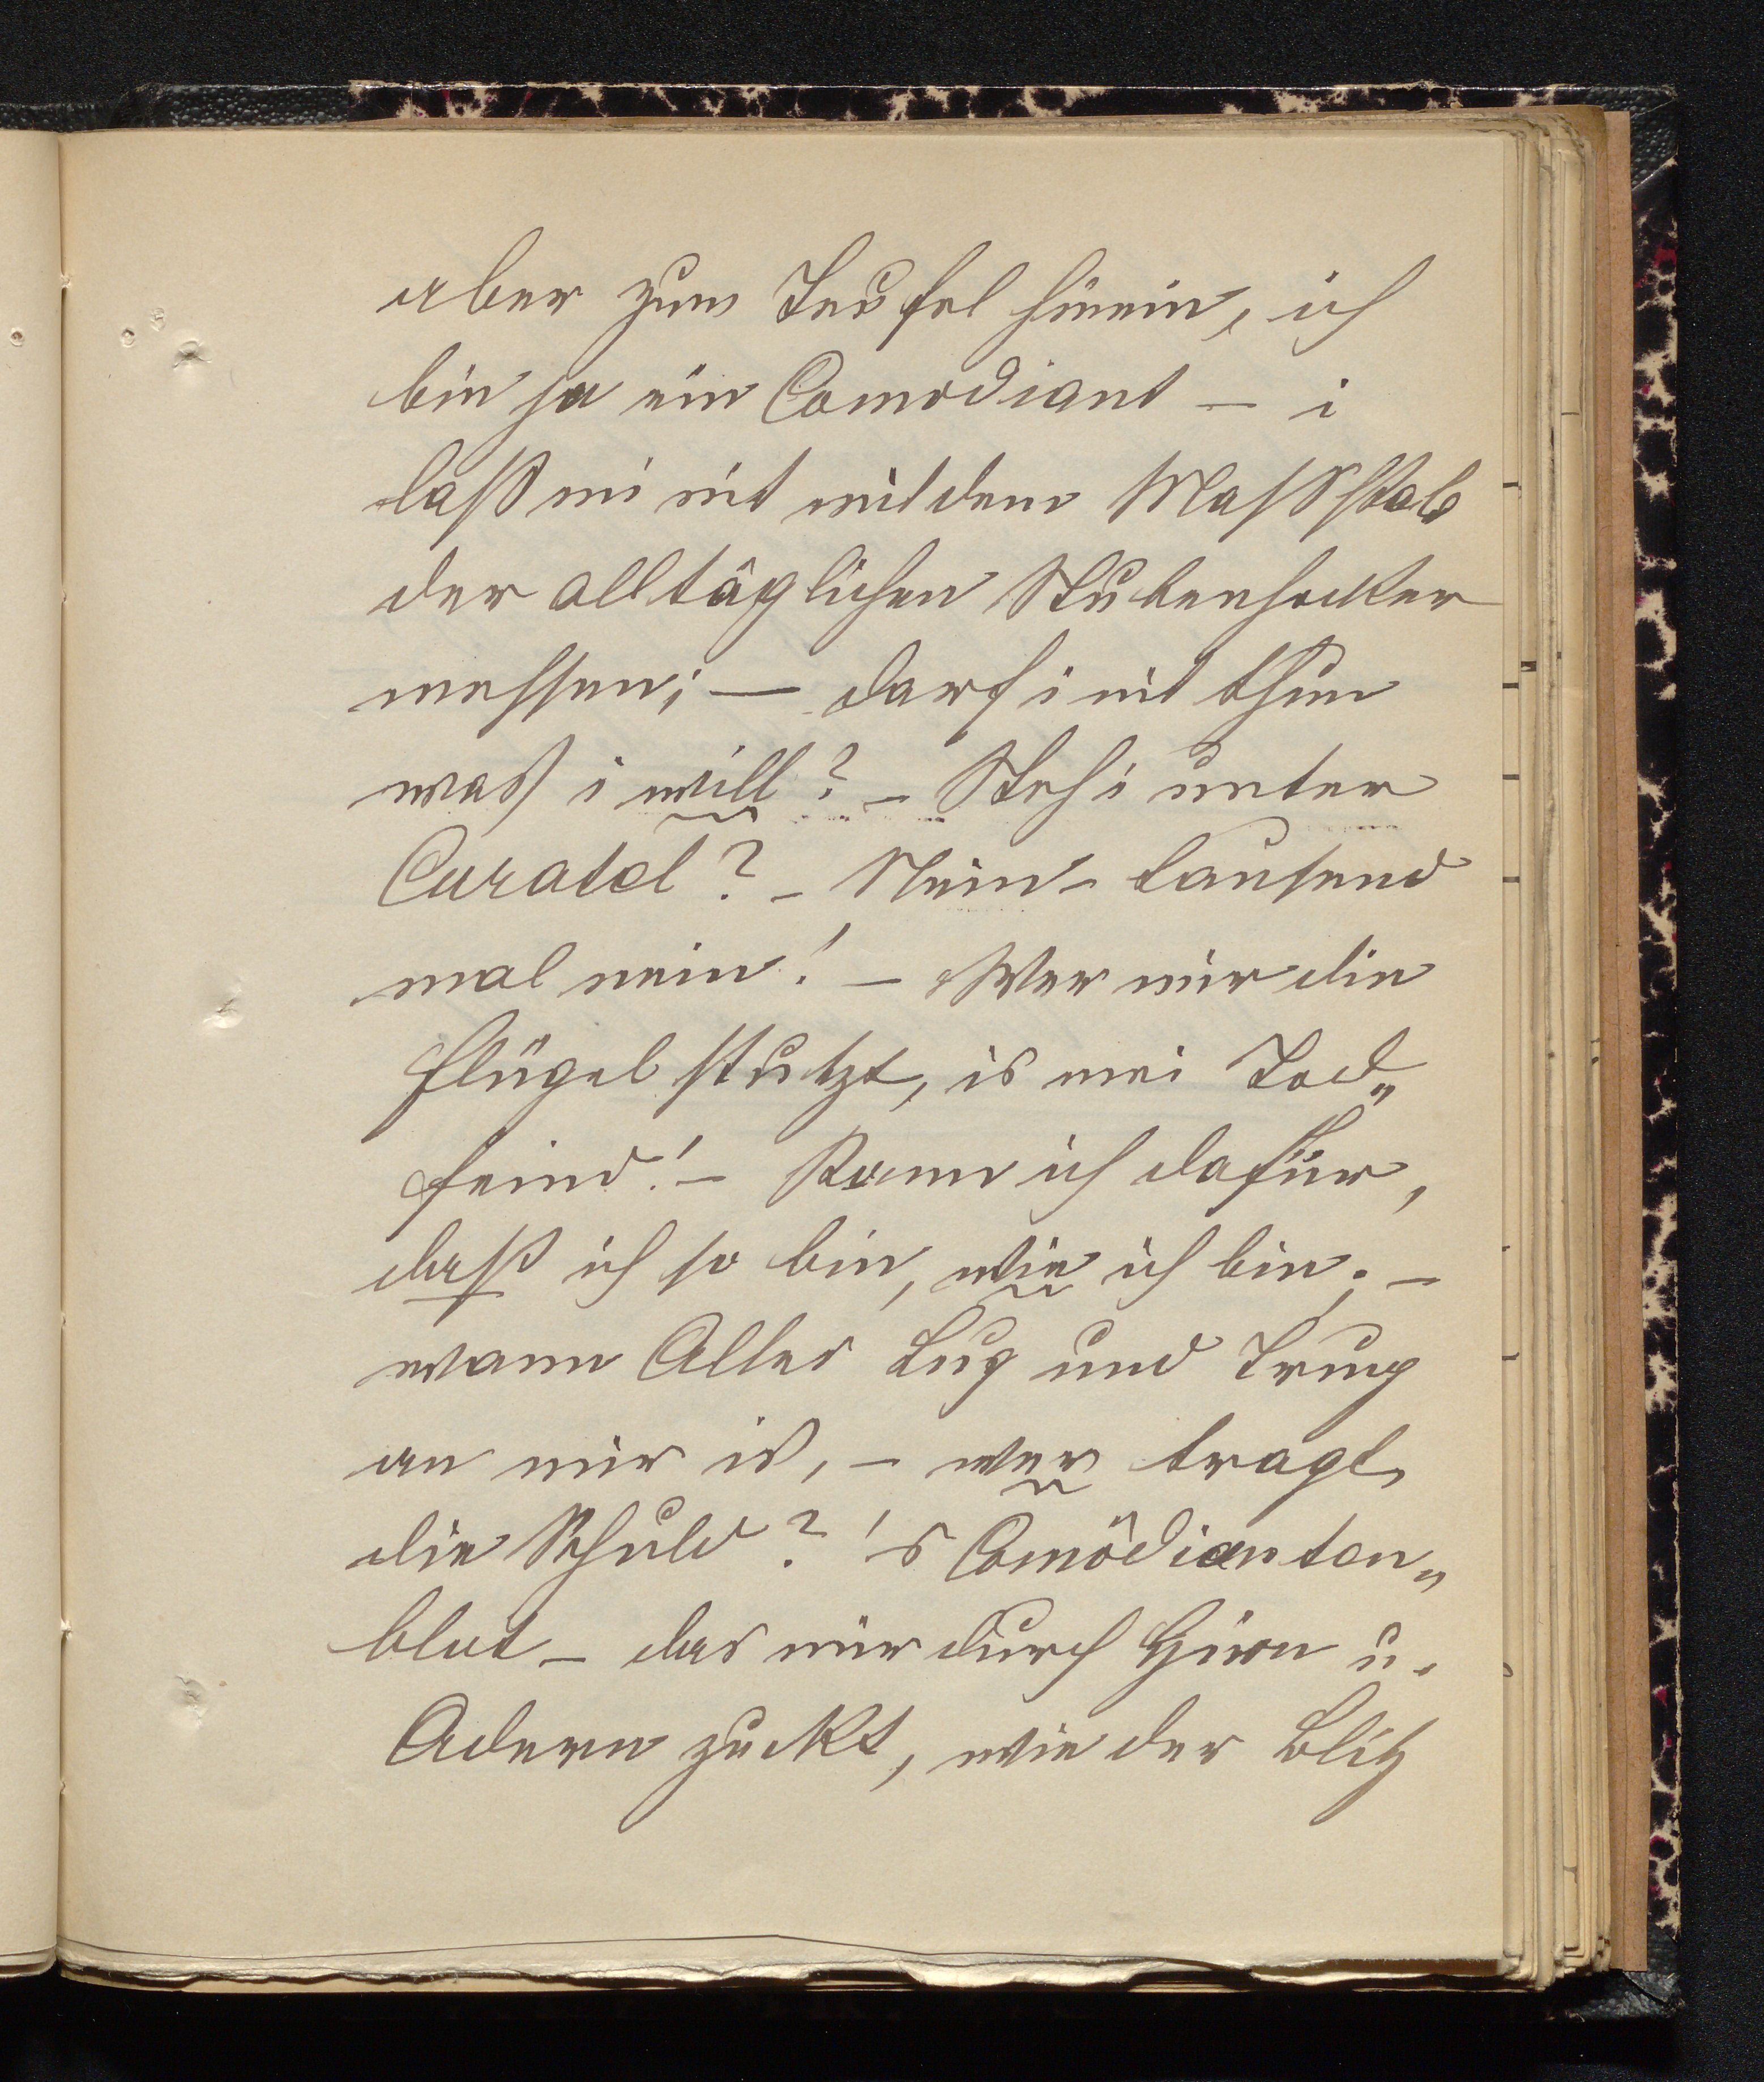 aber zum Teufel hinein, ich
bin ja ein Comödiant – i
laß mi nit mit dem Maßstab
der alltäglichen Stubenhocker
messen; – darf i nit thun
was i will? – Steh i unter
Curatel? – Nein – tausend
mal nein! – Wer mir die
Flügel stutzt, is mei Tod„
feind! – Kann ich dafür,
daß ich so bin, wie ich bin; –
wann Alles Lug und Trug
an mir is, – wer tragt
die Schuld? 's Comödianten„
blut – das mir durch Hirn u.
Adern zuckt, wie der Blitz